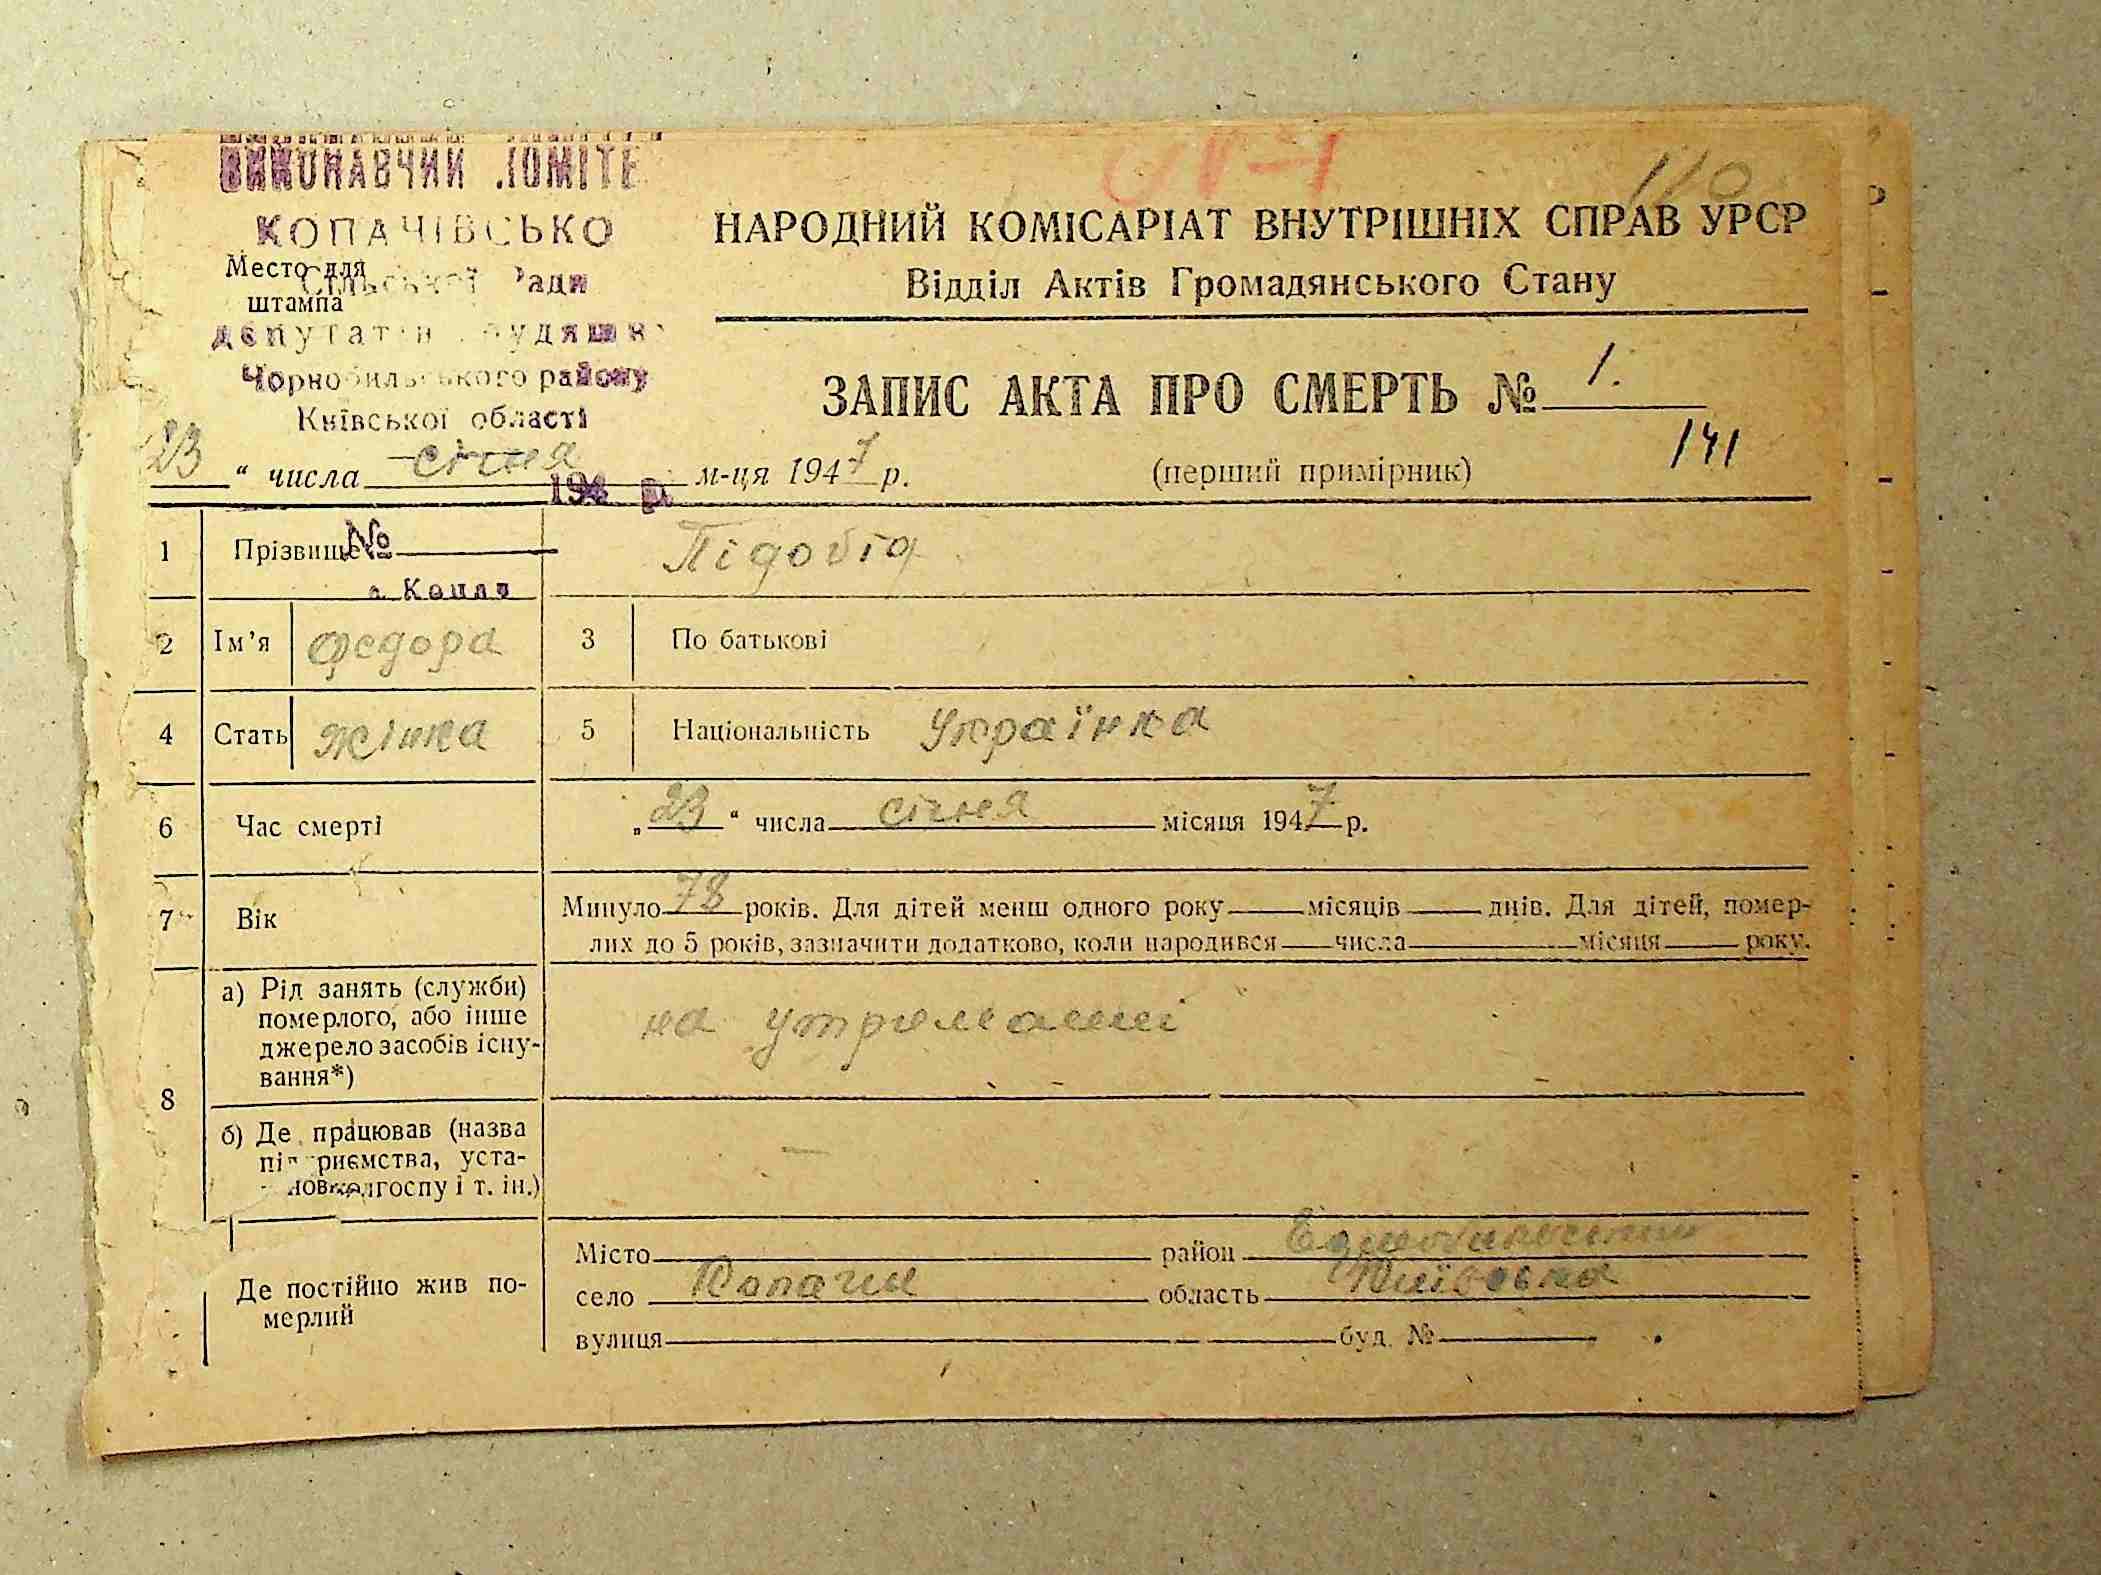 ВИКОНАВЧИЙ КОМІТЕ
КОПАЧІВСЬКО
Сільської Ради
Место для штампа
депутатів трудящих
Чорнобильського району
Київської області
194 р.
№
с. Копач
110
НАРОДНИЙ КОМІСАРІАТ ВНУТРІШНІХ СПРАВ УРСР
Відділ Актів Громадянського Стану
ЗАПИС АКТА ПРО СМЕРТЬ № 1.
141
23 “ числа січня м-ця 1947 р. (перший примірник)
1 Прізвище Підобід
2 Ім’я Федора 3 По батькові
4 Стать жінка 5 Національність Українка
6 Час смерті „23“ числа січня місяця 1947 р.
7 Вік Минуло 78 років. Для дітей менш одного року місяців днів. Для дітей, помер-
лих до 5 років, зазначити додатково, коли народився числа місяця року.
8 а) Рід занять (служби)
померлого, або інше
джерело засобів існу-
вання*)
на утриманні
б) Де працював (назва
підприємства, уста-
нови, колгоспу і т. ін.)
—
Де постійно жив по-
мерлий
Місто район
село Копачи область Київська
вулиця буд. №